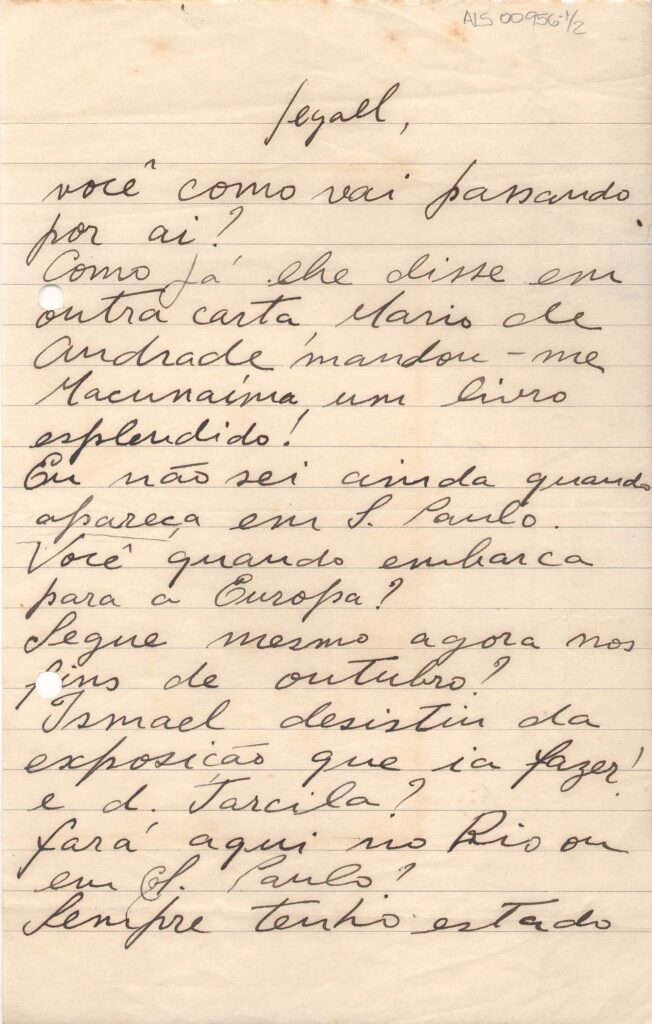 ALS 00956-1/2
Segall,
você como vai passando
por ai?
Como já lhe disse em
outra carta, Mario de
Andrade mandou-me
Macunaíma, um livro
esplendido!
Eu não sei ainda quando
apareça em S. Paulo.
Você quando embarca
para a Europa?
Segue mesmo agora nos
fins de outubro?
Ismael desistiu da
exposição que ia fazer!
e d. Tarcila?
fará aqui no Rio ou
em S. Paulo?
Sempre tenho estado